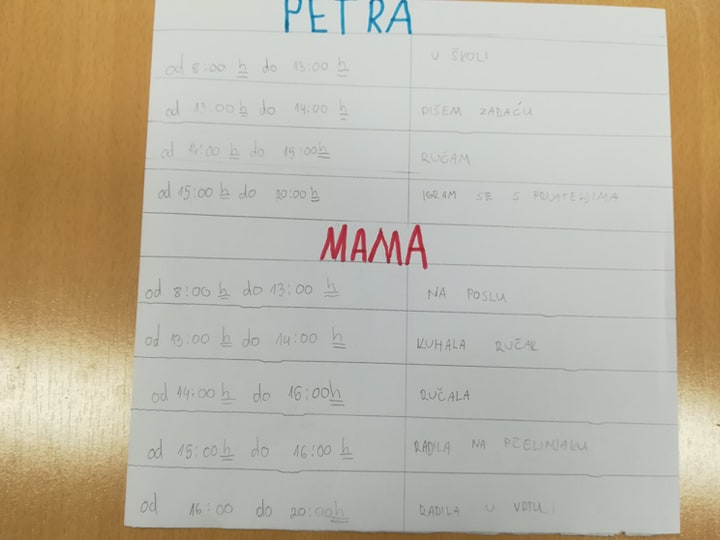 PETRA
od 8:00 h do 13:00 h U ŠKOLI
od 13:00 h do 14:00 h PIŠEM ZADAĆU
od 14:00 h do 15:00 h RUČAM
od 15:00 h do 20:00 h IGRAM SE S PRIJATELJIMA
MAMA
od 8:00 h do 13:00 h NA POSLU
od 13:00 h do 14:00 h KUHALA RUČAK
od 14:00 h do 15:00 h RUČALA
od 15:00 h do 16:00 h RADILA NA PČELINJAKU
od 16:00 do 20:00 h RADILA U VRTU